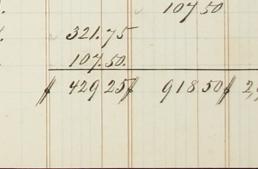 107 50
321.75
107.50.
$ 429 25 $ 918 50 $ 2